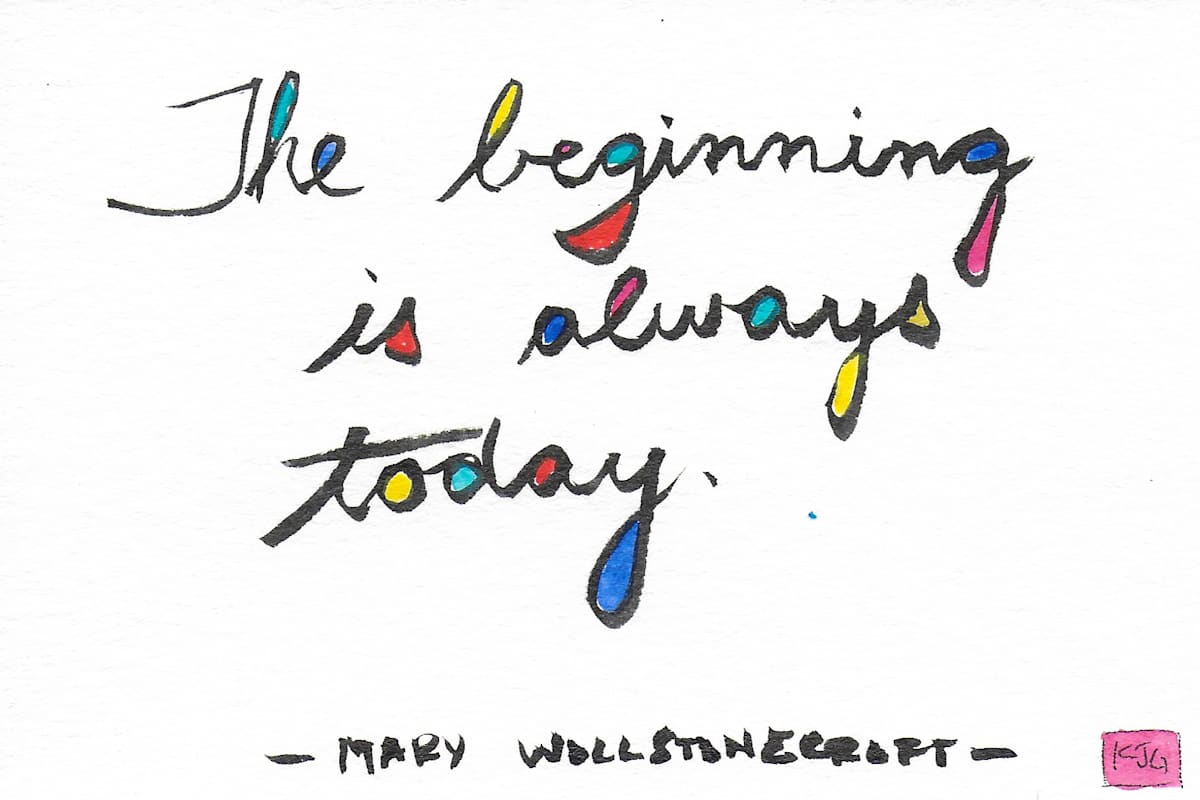 The beginning
is always
today.
- MARY WOLLSTONECROFT -
KJG